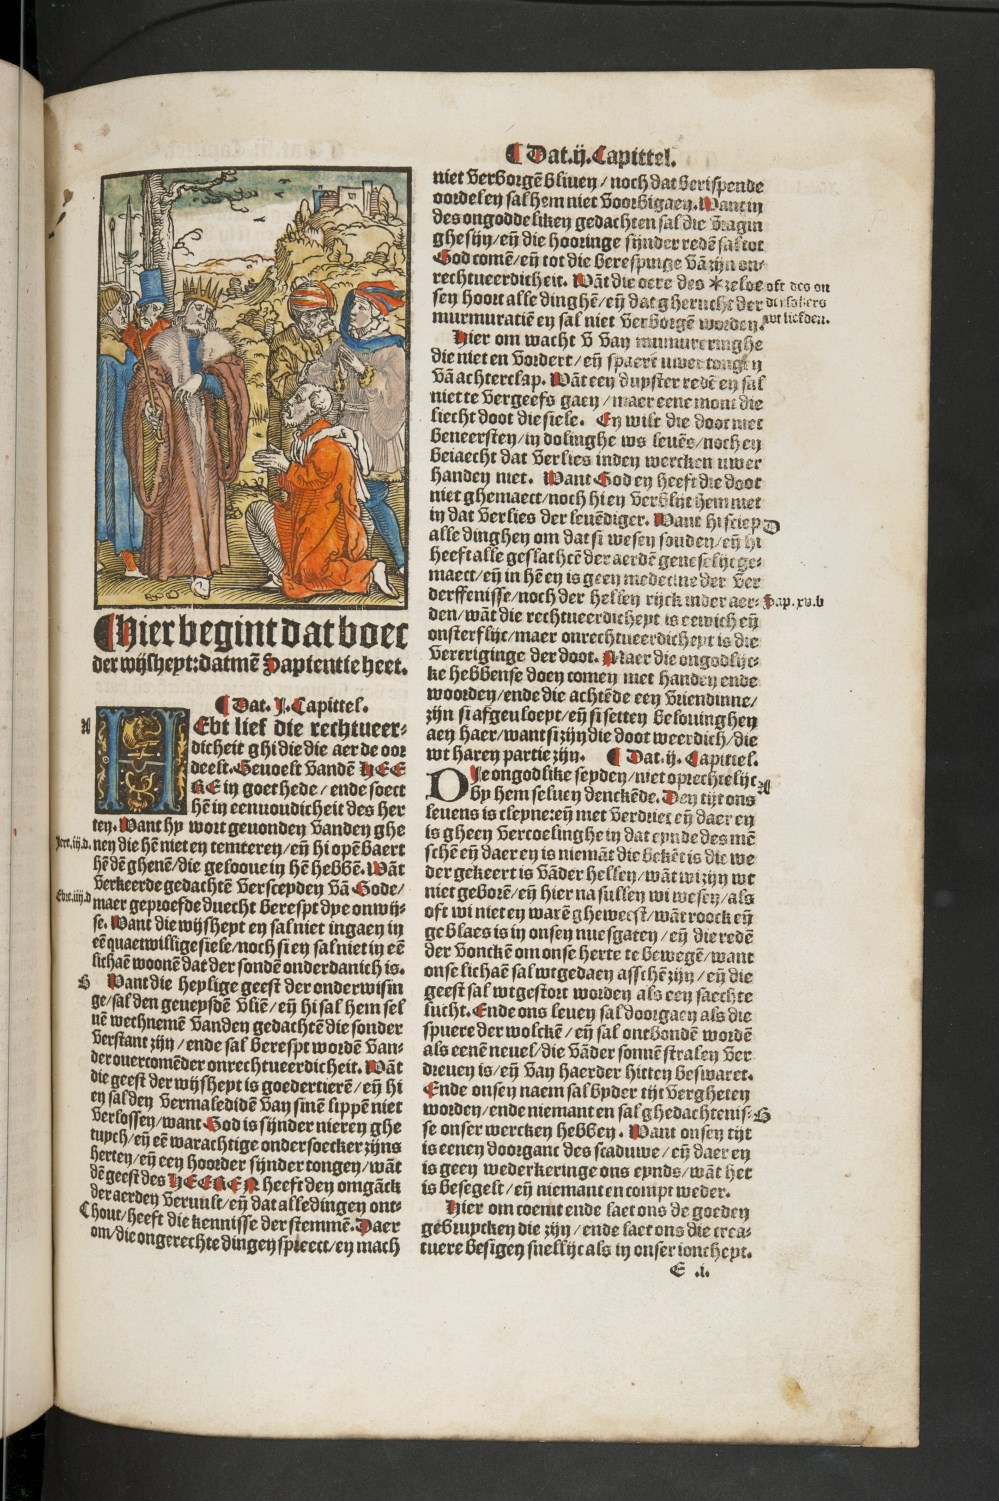 ¶ Dat.ij.Capittel.
¶ Hier begint dat boec
der wijsheyt: datmē Sapientie heet.
¶ Dat. J. Capittel.
A
HEbt lief die rechtueer-
dicheit ghi die die aerde oor
deelt. Geuoelt vandē HEE
RE in goethede / ende soect
hē in eenuoudicheit des her
ten. Want hy wort geuonden vanden ghe
nen die hē niet en temteren / eñ hi opēbaert
hē dē ghenē / die geloone in hē hebbē. Wāt
verkeerde gedachtē versceyden vā Gode /
maer geproefde duecht berespt dye onwij-
se. Want die wijsheyt en sal niet ingaen in
eē quaetwillige siele / noch si en sal niet in eē
lichaē woonē dat der sondē onderdanich is.
B Want die heylige geest der onderwisin
ge / sal den geueysdē vliē / eñ hi sal hem sel
uē wechnemē vanden gedachtē die sonder
verstant zijn / ende sal berespt wordē van-
der ouercomēder onrechtueerdicheit. Wāt
die geest der wijsheyt is goedertierē / eñ hi
en sal den vermaledidē van sinē lippē niet
verlossen / want God is sijnder nieren ghe
tuych / eñ eē warachtige ondersoecker zijns
herten / eñ een hoorder sijnder tongen / wāt
dē geest des HEEREN heeft den omgāck
der aerden veruult / eñ dat alle dingen ont-
C hout / heeft die kennisse der stemmē. Daer
om / die ongerechte dingen spreect / en mach
niet verborgē bliuen / noch dat berispende
oordel en sal hem niet voorbigaen. Want in
des ongoddeliken gedachten sal die vragin
ghe sijn / eñ die hooringe sijnder redē sal tot
God comē / eñ tot die berespinge vā zijn on-
rechtueerdicheit. Wāt die oore des * zeloe
sen hoort alle dinghē / eñ dat gheruche der
murmuratiē en sal niet verborgē worden.
oft des on
wt liefden.
Hier om wacht v van murmureringhe
die niet en vordert / eñ spaert uwer tongen
vā achterclap. Wāt een duyster redē en sal
niet te vergeefs gaen / maer eene mont die
liecht doot die siele. En wilt die doot niet
beneersten / in dolinghe ws leuēs / noch en
beiaecht dat verlies inden wercken uwer
handen niet. Want God en heeft die doot
niet ghemaect / noch hi en verblijt hem niet
in dat verlies der leuēdiger. Want hi sciep D
alle dinghen om dat si wesen souden / eñ hi
heeft alle geslachtē der aerdē geneselijc ge-
maect / eñ in hē en is geen medecine der ver
derffenisse / noch der hellen rijck inder aer-
Sap. xv.b
den / wāt die rechtueerdicheyt is eewich eñ
onsterflijc / maer onrechtueerdicheyt is die
vercriginge der doot. Maer die ongodlijc-
ke hebbense doen comen met handen ende
woorden / ende die achtēde een vriendinne /
zijn si afgeuloeyt / eñ si setten belouinghen
aen haer / want si zijn die doot weerdich / die
wt haren partie zijn. ¶ Dat. ij. Capittel.
DIe ongodlike seyden / niet oprechtelijc A
by hem seluen denckēde. Den tijt ons
leuens is cleyne: eñ met verdriet eñ daer en
is gheen vercoelinghe in dat eynde des mē
schē eñ daer en is niemāt die bekēt is die we
der gekeert is vāder hellen / wāt wi zijn wt
niet geborē / eñ hier na sullen wi wesen / als
oft wi niet en warē gheweest / wāt roock eñ
geblaes is in onsen nuesgaten / eñ die redē
der vonckē om onse herte te bewegē / want
onse lichaē sal wtgedaen asschē zijn / eñ die
geest sal wtgestort worden als een saechte
lucht. Ende ons leuen sal doorgaen als die
spuere der wolckē / eñ sal ontbondē wordē
als eenē neuel / die vāder sonnē stralen ver
dreuen is / eñ van haerder hitten beswaret.
Ende onsen naem sal byder tijt vergheten
worden / ende niemant en sal ghedachtenis- B
se onser wercken hebben. Want onsen tijt
is eenen doorganc des scaduwe / eñ daer en
is geen wederkeringe ons eynds / wāt het
is besegelt / eñ niemant en compt weder.
Hier om coemt ende laet ons de goeden
gebruycken die zijn / ende laet ons die crea-
tuere besigen snellijc als in onser ioncheyt.
E .i.